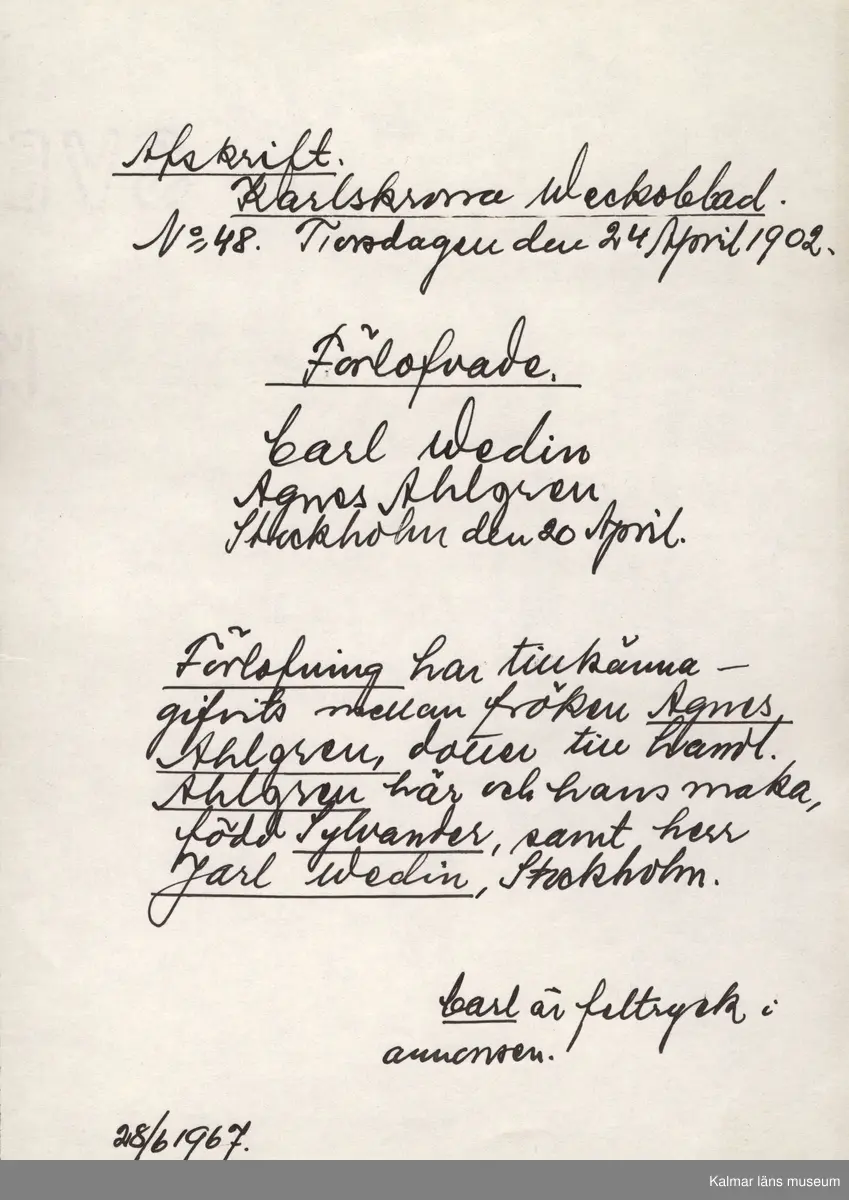 Afskrift.
Karlskrona Weckoblad.
No 48. Torsdagen den 24 April 1902.
Förlofvade.
Carl Wedin
Agnes Ahlgren
Stockholm den 20 April.
Förlofning har tillkänna-
gifvits mellan fröken Agnes
Ahlgren, dotter till handl.
Ahlgren här och hans maka,
född Sylvander, samt herr
Jarl Wedin, Stockholm.
Carl är feltryck i
annonsen.
28/6 1967.
Kalmar läns museum